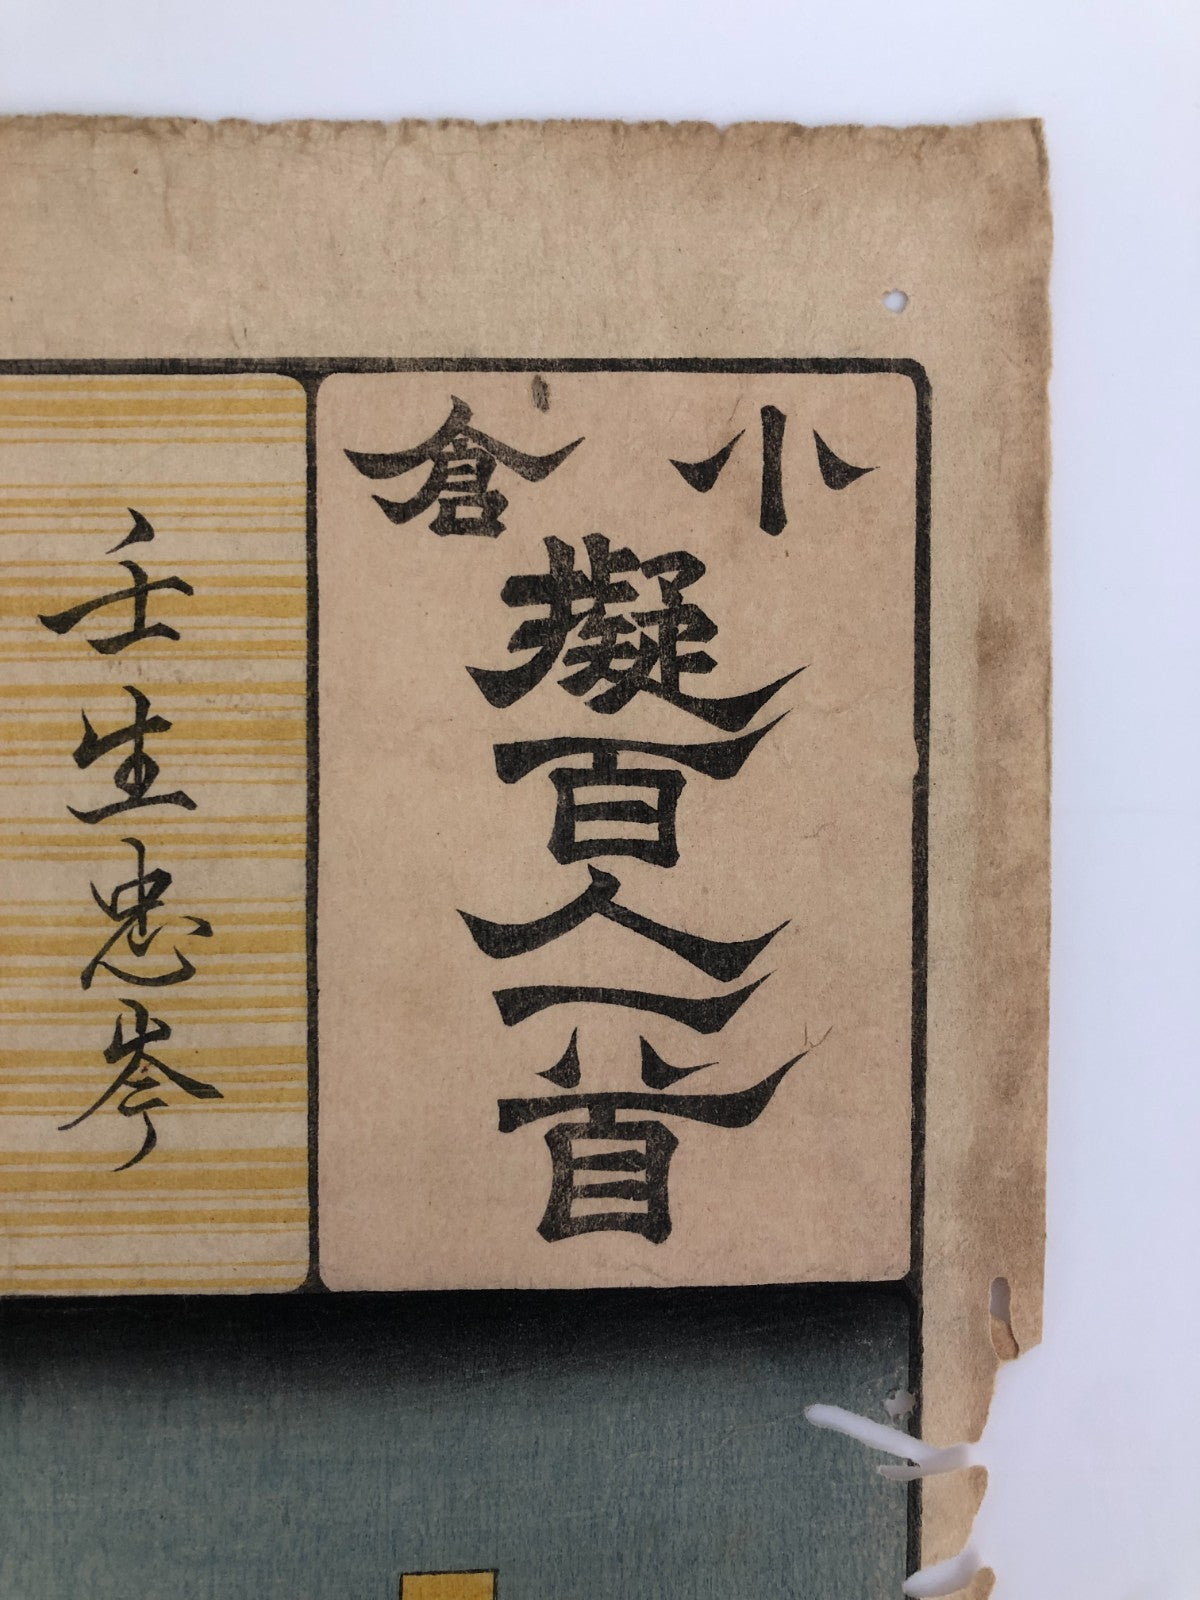 小倉
擬百人一首
壬生忠岑